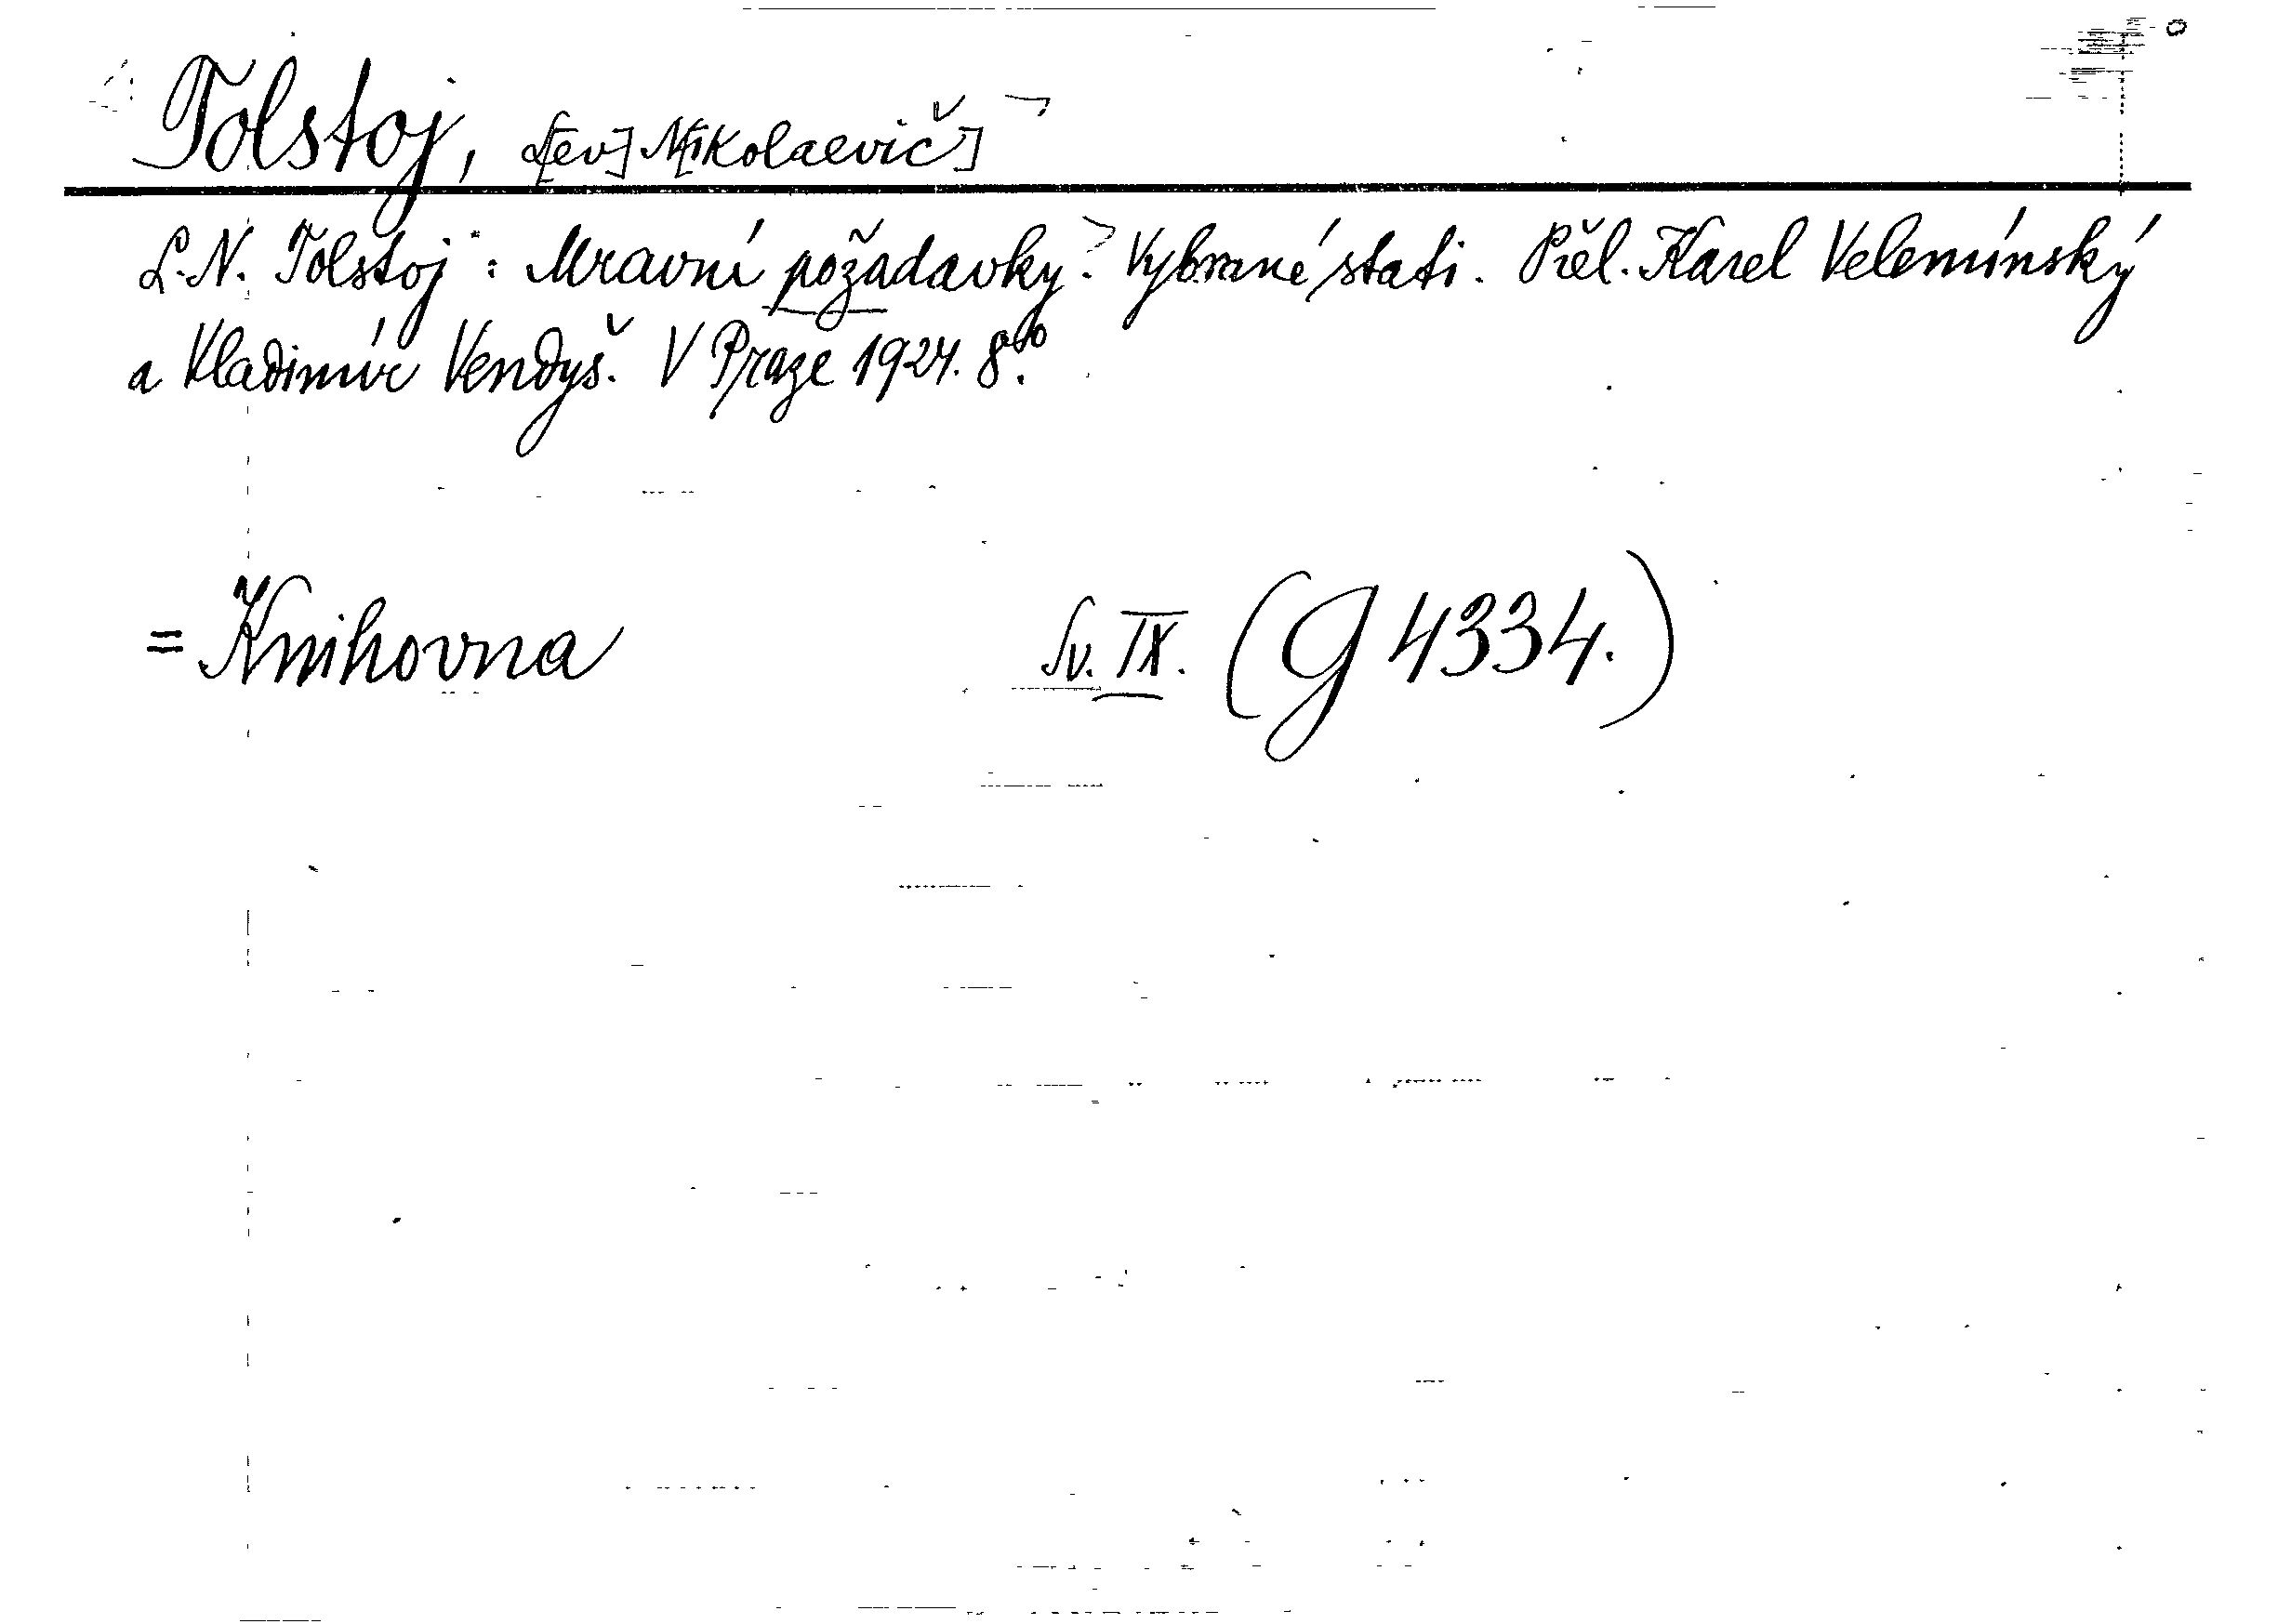 Tolstoj, L[ev] N[ikolaevič]
L. N. Tolstoj: Mravní požadavky. Vybrané stati. Přel. Karel Velemínský
a Vladimír Vendyš. V Praze 1924. 8º.
= Knihovna Sv. IX. (G 4334.)